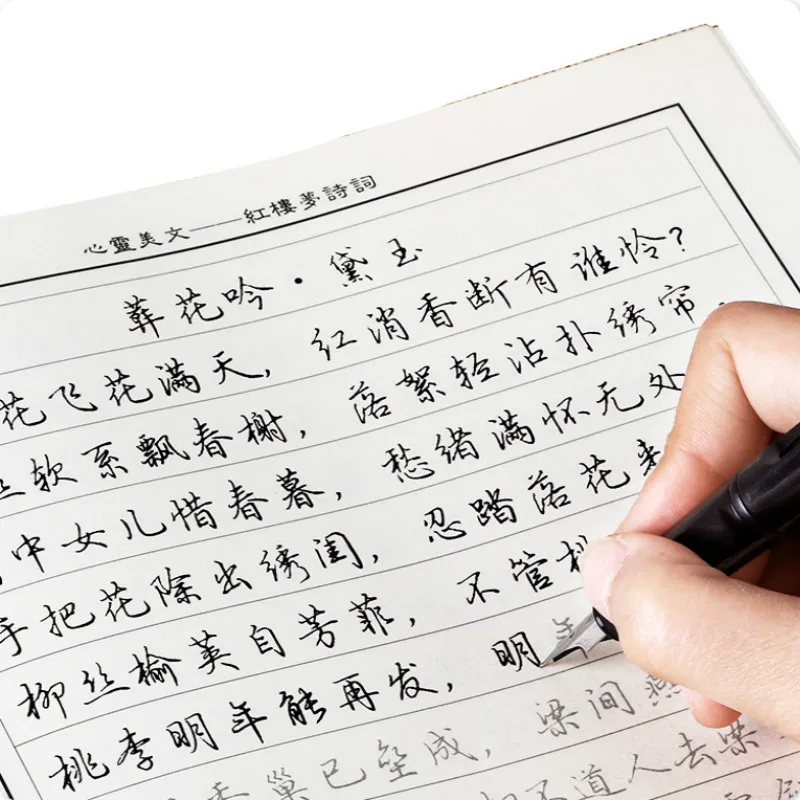 心靈美文——紅樓夢詩詞
葬花吟·黛玉
花飞花满天，红消香断有谁怜？
丝软系飘春榭，落絮轻沾扑绣帘，
中女儿惜春暮，愁绪满怀无处
手把花除出绣闺，忍踏落花来
柳丝榆英自芳菲，不管桃
桃李明年能再发，明年
香巢已垒成，梁间燕
却不道人去梁